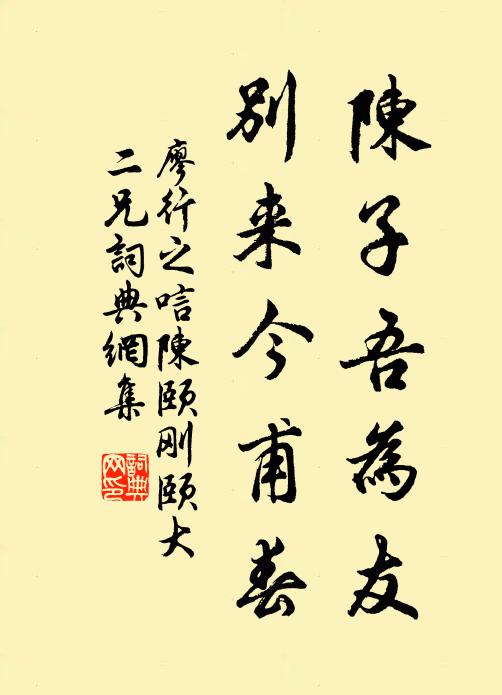 陳子吾為友
別来今甫春
廖行之唁陳頤剛頤大
二兄詞典網集
詞典网印